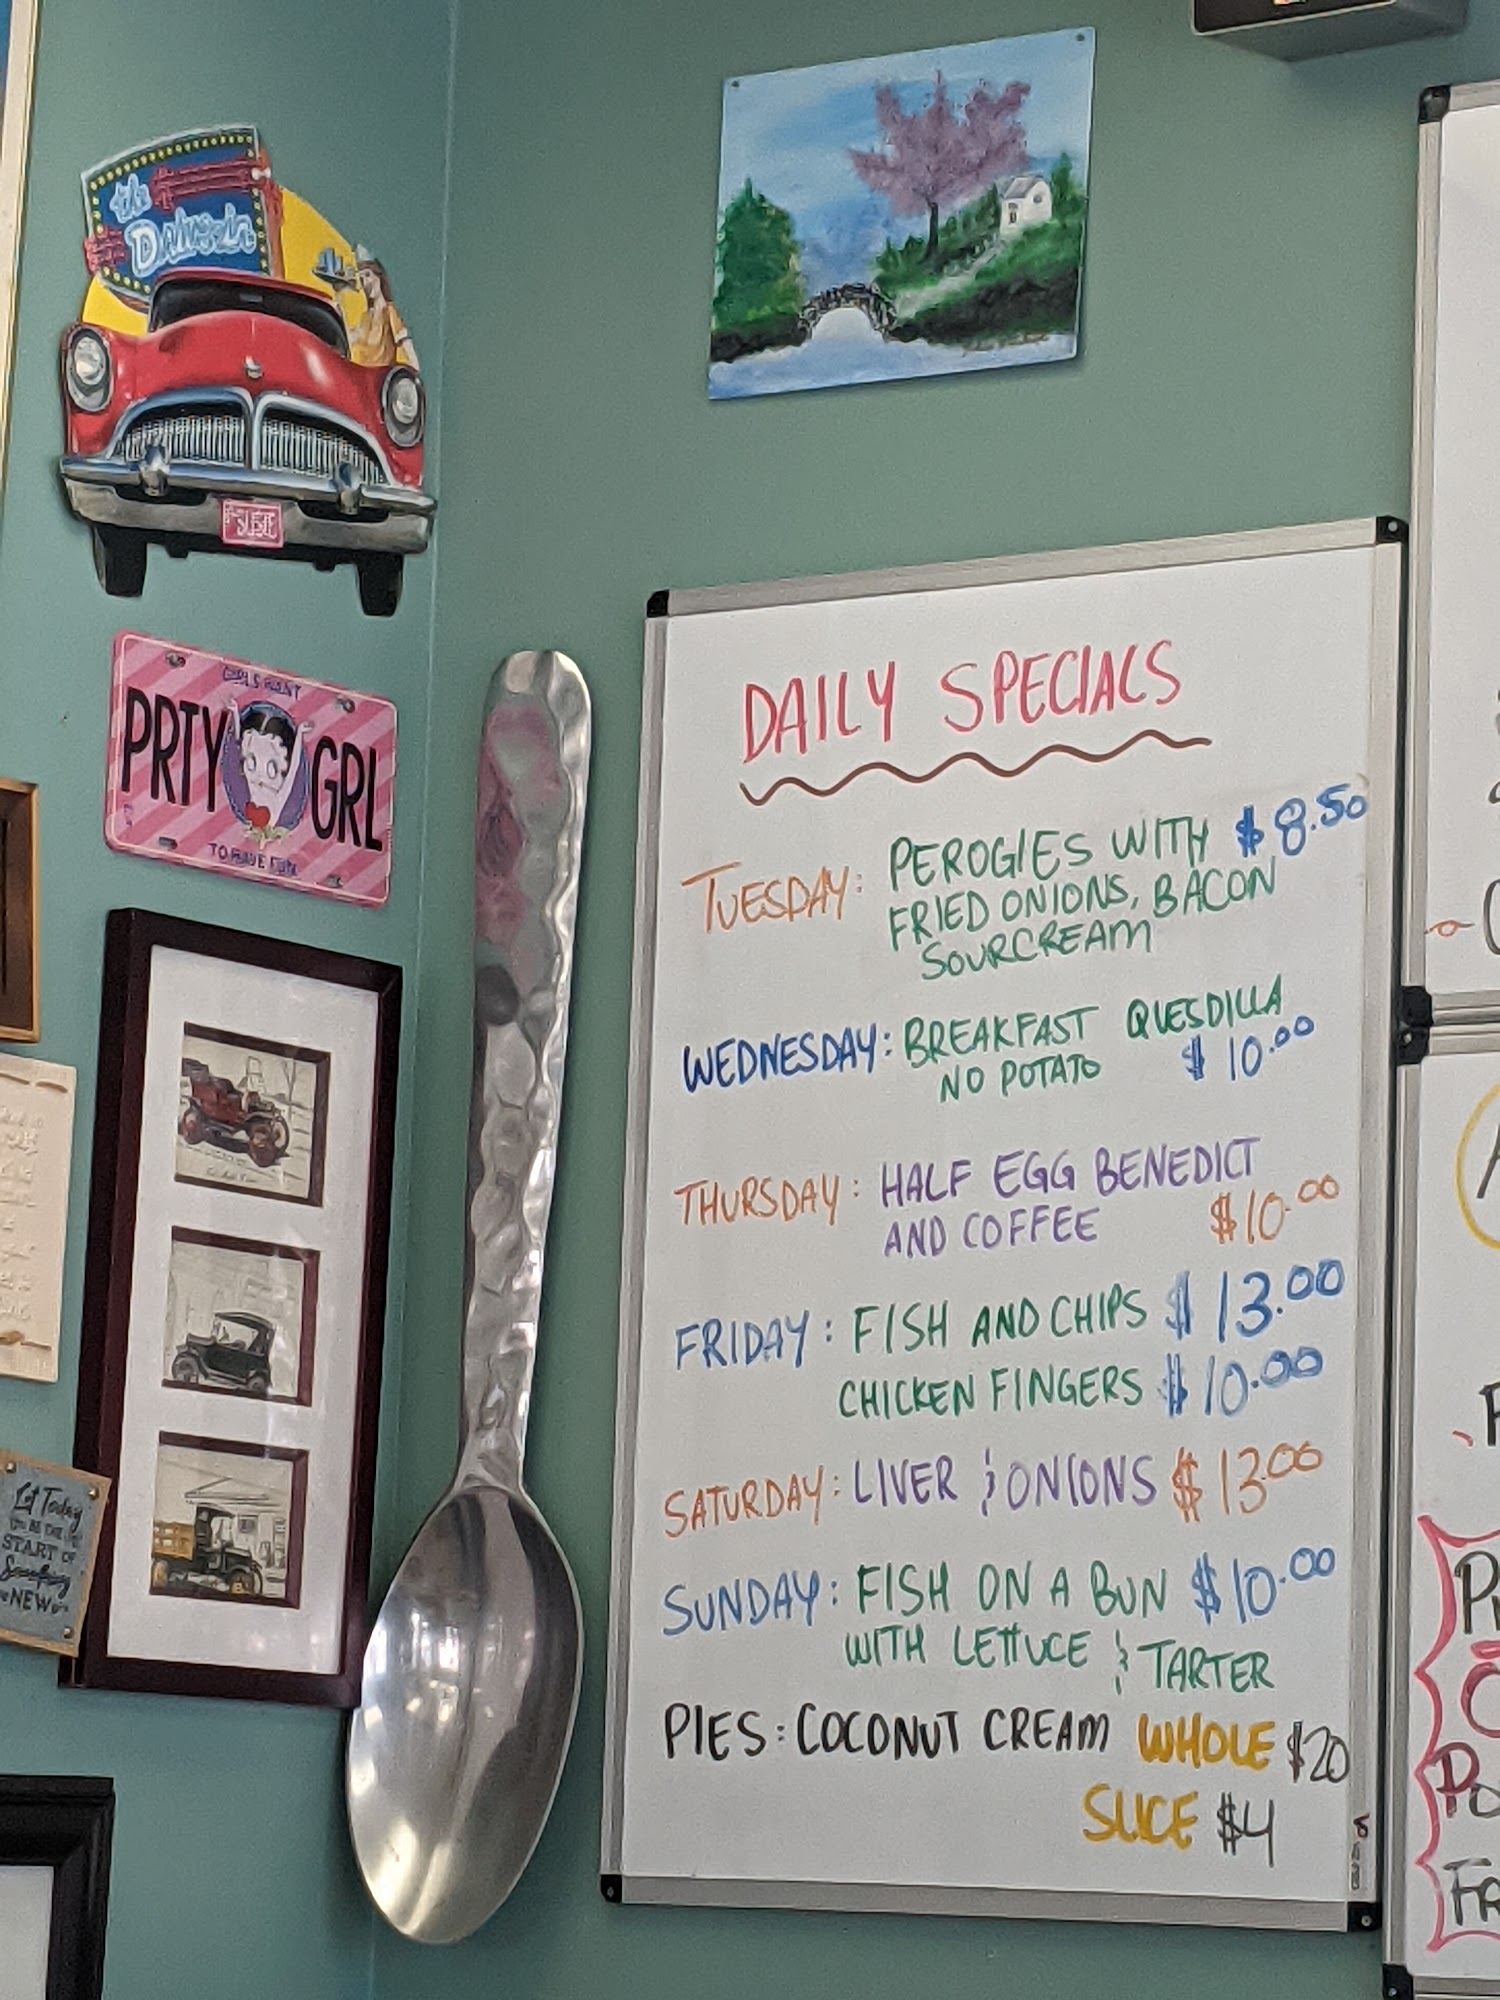 the
Drive-in
GIRLS WANT
PRTY GRL
TO HAVE FUN
Let Today
BE THE
START OF
Something
NEW
DAILY SPECIALS
TUESDAY: PEROGIES WITH $8.50
FRIED ONIONS, BACON
SOURCREAM
WEDNESDAY: BREAKFAST QUESDILLA
NO POTATO $10.00
THURSDAY: HALF EGG BENEDICT
AND COFFEE $10.00
FRIDAY: FISH AND CHIPS $13.00
CHICKEN FINGERS $10.00
SATURDAY: LIVER & ONIONS $13.00
SUNDAY: FISH ON A BUN $10.00
WITH LETTUCE & TARTER
PIES: COCONUT CREAM WHOLE $20
SLICE $4